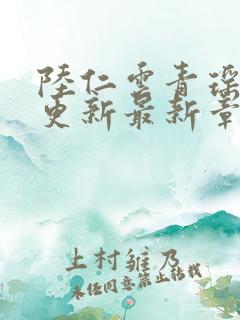 陸仁雲青瑶
更新最新章
上村雏乃
未经同意禁止转载